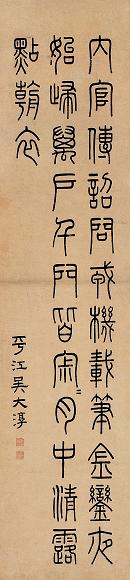 內官傳詔問戎機載筆金鑾夜
始歸萬戶千門皆寂〻月中清露
點朝衣
平江吳大淳